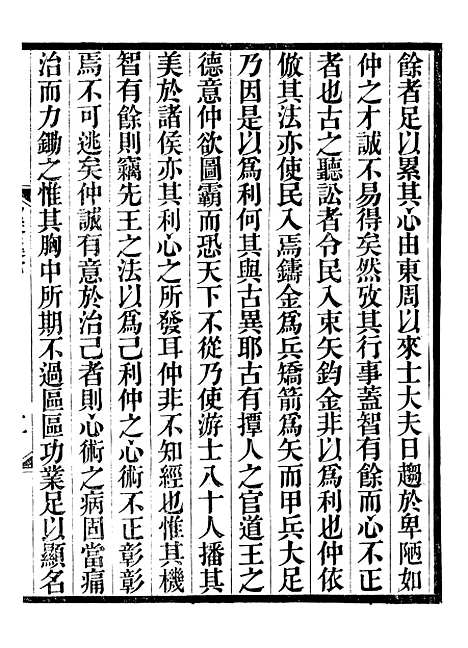 餘者足以累其心由東周以來士大夫日趨於卑陋如
仲之才誠不易得矣然攷其行事蓋智有餘而心不正
者也古之聽訟者令民入束矢鈞金非以爲利也仲依
倣其法亦使民入焉鑄金爲兵矯箭爲矢而甲兵大足
乃因是以爲利何其與古異耶古有撢人之官道王之
德意仲欲圖霸而恐天下不從乃使游士八十人播其
美於諸侯亦其利心之所發耳仲非不知經也惟其機
智有餘則竊先王之法以爲己利仲之心術不正彰彰
焉不可逃矣仲誠有意於治己者則心術之病固當痛
治而力鋤之惟其胸中所期不過區區功業足以顯名